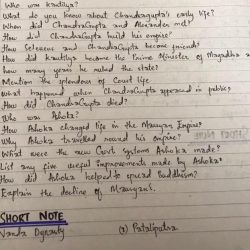 Who was Kautilya?
What do you know about Chandragupta's early life?
When did Chandragupta and Alexander met?
How did Chandragupta build his empire?
How Seleucus and Chandragupta became friends?
How did Kautilya became the Prime Minister of Magadha &
how many years he ruled the state?
Mention the splendour of the Court life
What happened when Chandragupta appeared in public?
How did Chandragupta died?
Who was Ashoka?
How Ashoka changed life in the Mauryan Empire?
Why Ashoka travelled round his empire?
What were the new Govt systems Ashoka made?
List any five useful improvements made by Ashoka?
How did Ashoka helped to spread Buddhism?
Explain the decline of Mauryans?
SHORT NOTE
Nanda Dynasty
Pataliputra